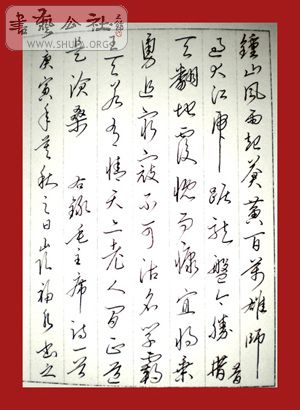 書藝公社
WWW.SHUFA.ORG
鐘山風雨起蒼黃百萬雄師
過大江虎踞龍盤今勝昔
天翻地覆慨而慷宜將乘
勇追窮寇不可沽名學霸
王天若有情天亦老人間正道
是滄桑 右錄毛主席詩一首
庚寅年秋之日山陰福書之